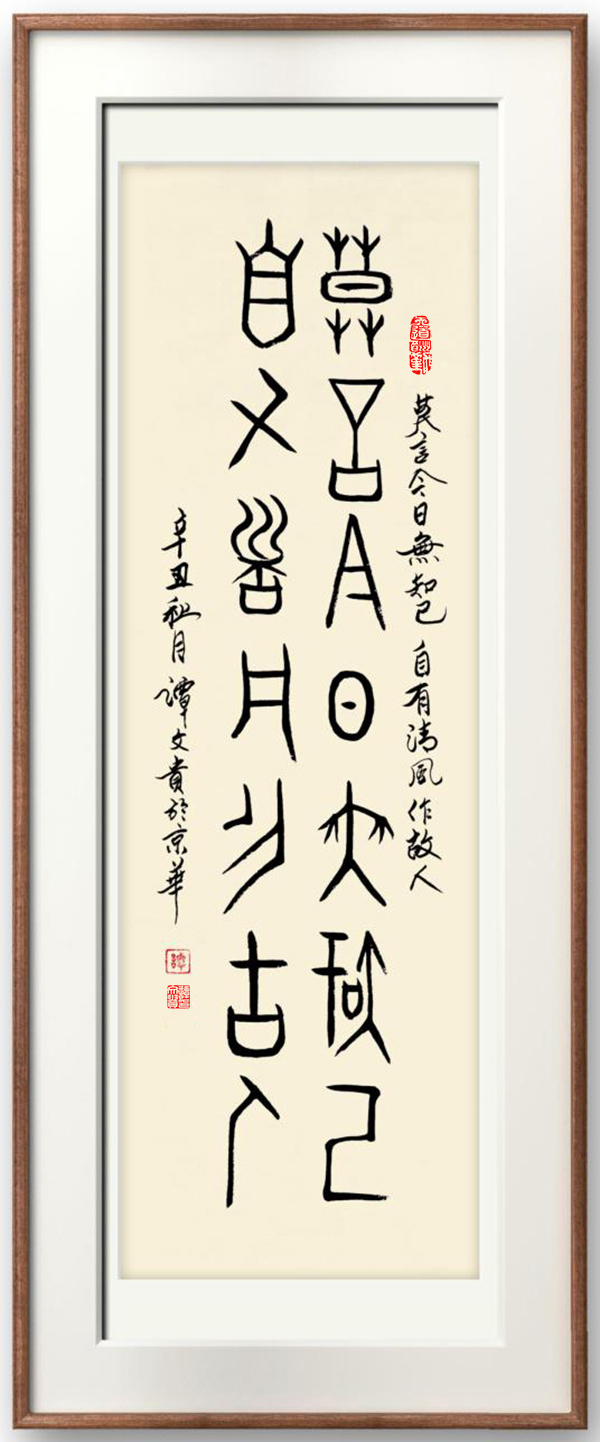 莫言今日無知己 自有清風作故人
莫言今日無知己
自有清風作故人
辛丑秋月譚文貴於京華
譚